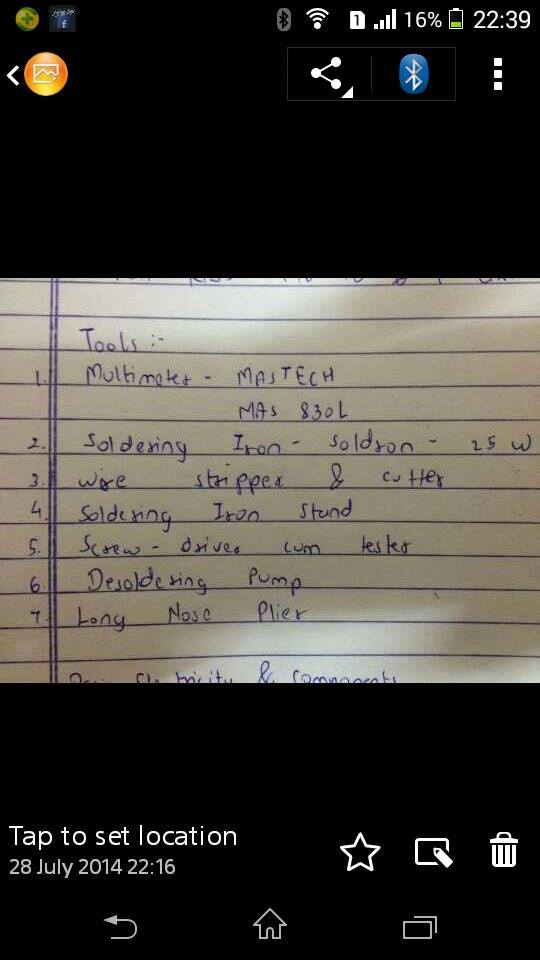 16% 22:39
Tools :-
1. Multimeter - MASTECH
MAS 830L
2. Soldering Iron - Soldron - 25 W
3. wire stripper & cutter
4. Soldering Iron Stand
5. Screw - driver cum tester
6. Desoldering Pump
7. Long Nose Plier
& components
Tap to set location
28 July 2014 22:16